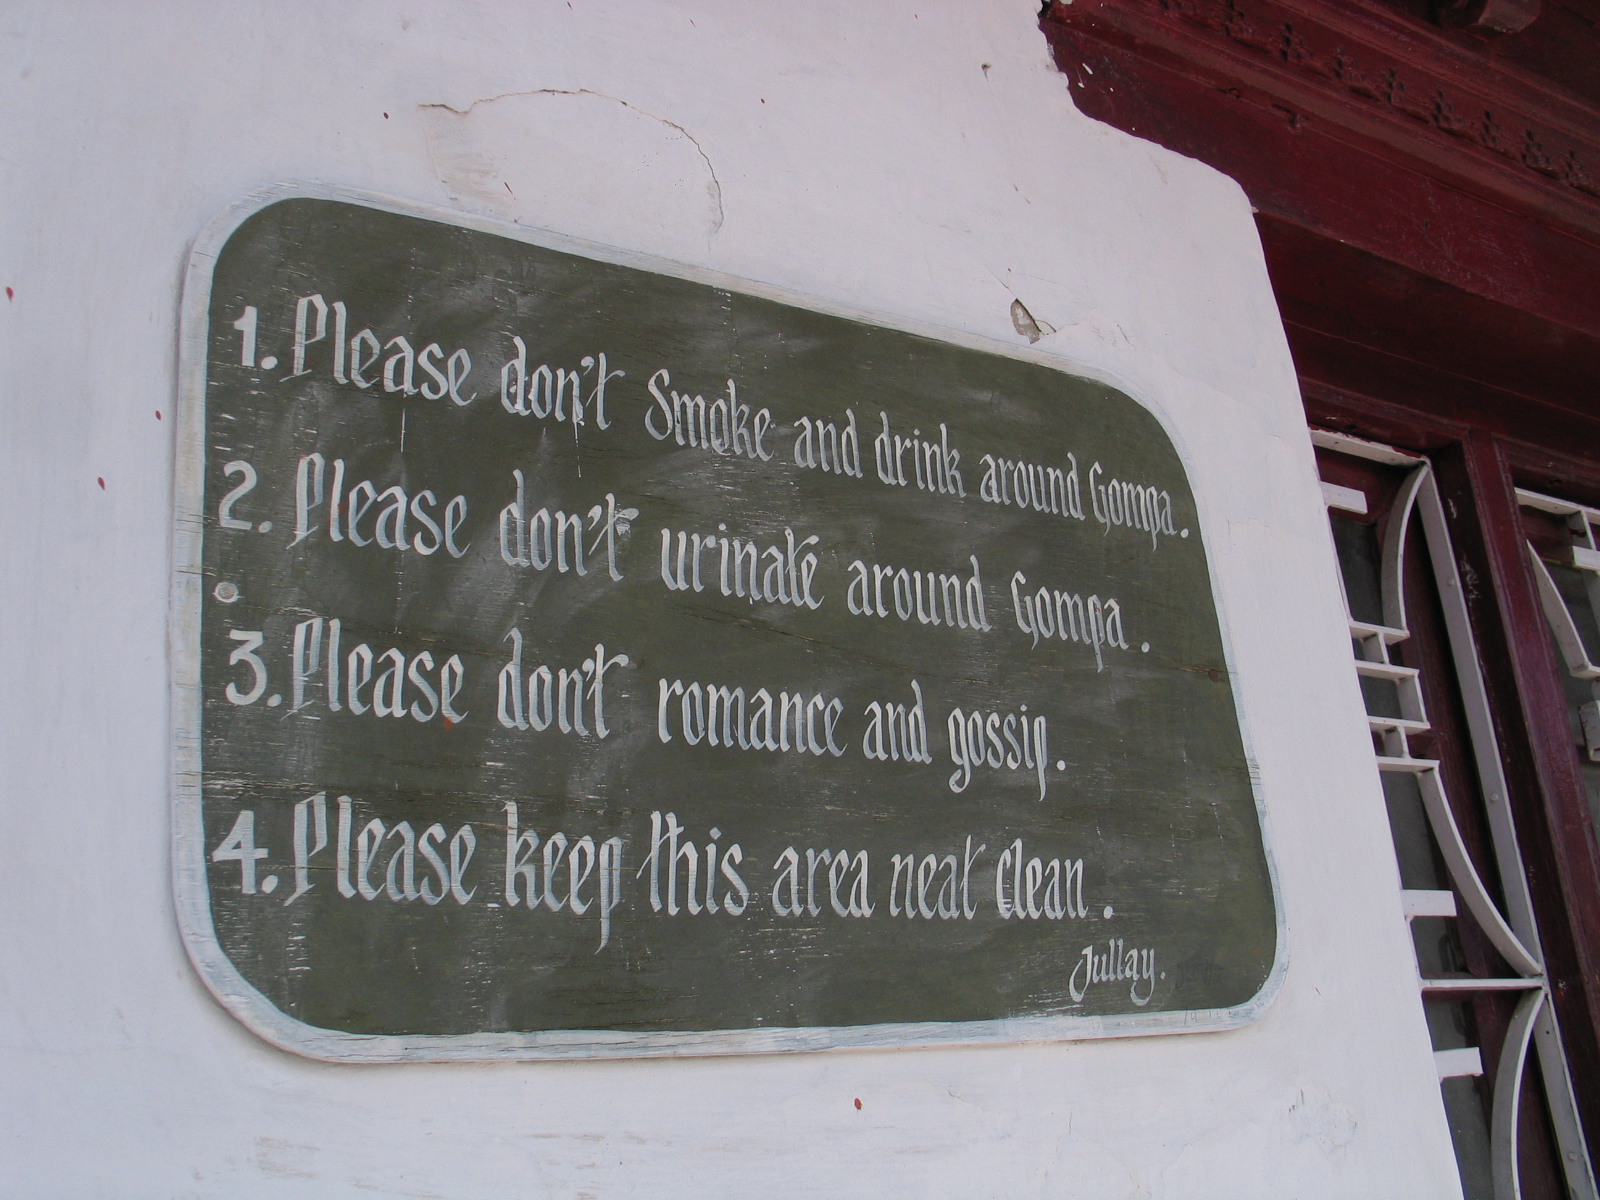 1. Please don't Smoke and drink around Gompa.
2. Please don't urinate around Gompa.
3. Please don't romance and gossip.
4. Please keep this area neat clean.
Jullay.